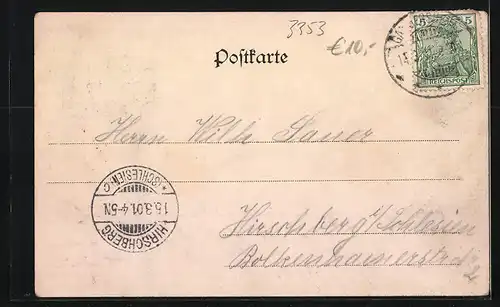 3353
€10,-
5 5
REICHSPOST
Postkarte
Herrn Wilh Sauer
HIRSCHBERG
15.3.01.4-5N.
*(SCHLESIEN)-C
Hirschberg i/Schlesien
Bolkenhainerstr